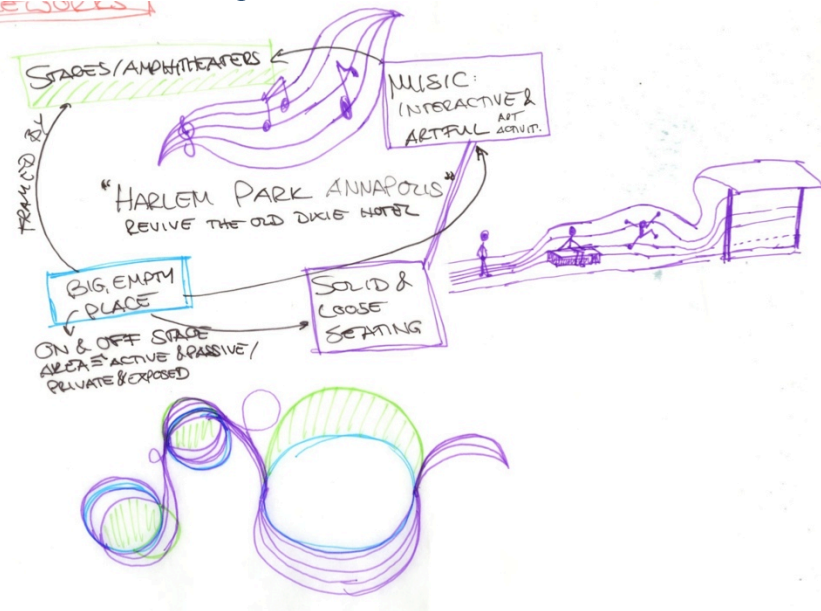 STAGES/AMPHITHEATERS
MUSIC:
INTERACTIVE &
ARTFUL ART ACTIVIT.
FRAMED BY
"HARLEM PARK ANNAPOLIS"
REVIVE THE OLD DIXIE HOTEL
BIG, EMPTY
PLACE
SOLID &
LOOSE
SEATING
ON & OFF STAGE
AREA = ACTIVE & PASSIVE/
PRIVATE & EXPOSED